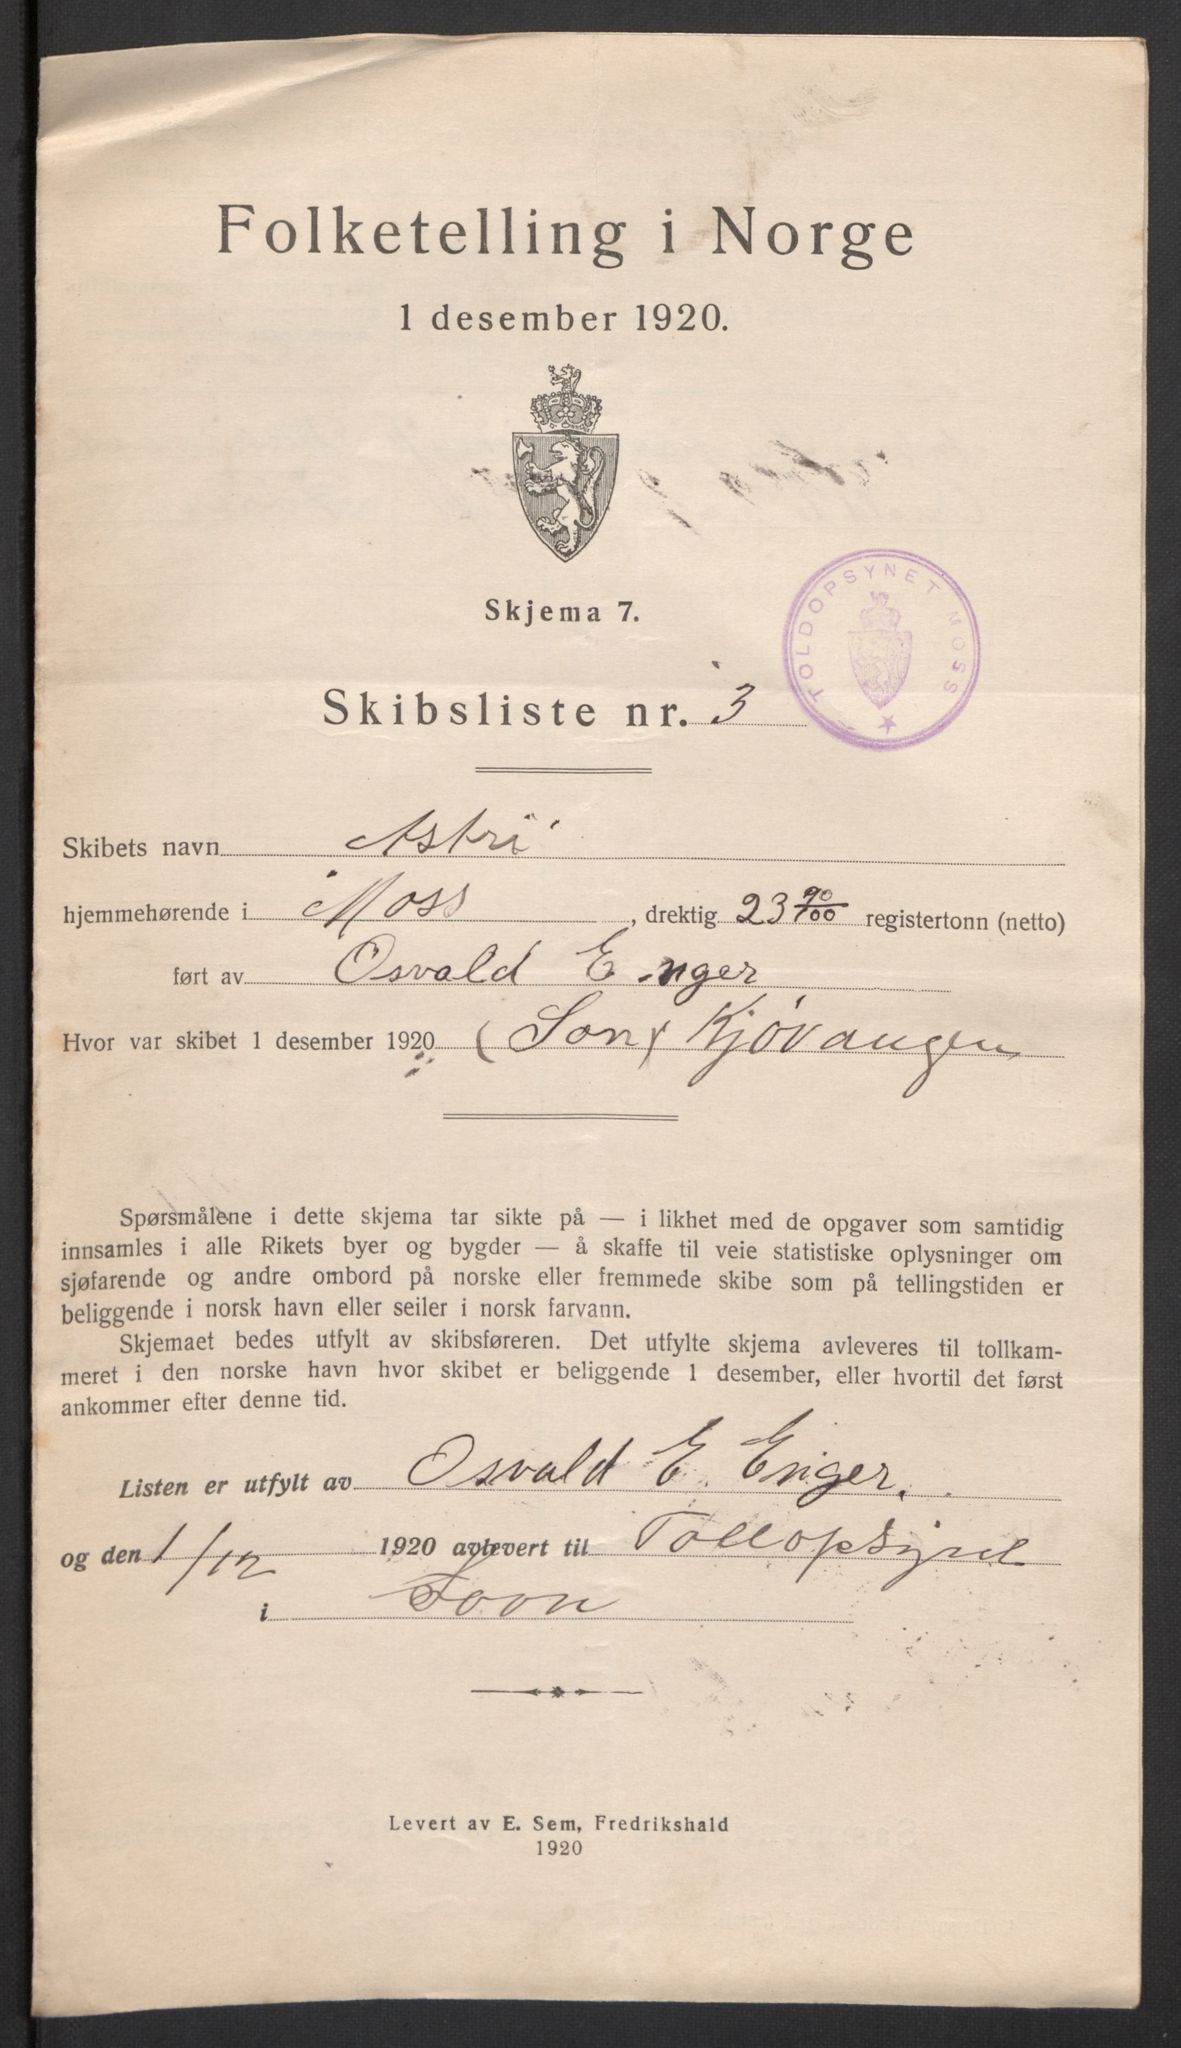 Folketelling i Norge
1 desember 1920.
Skjema 7.
TOLDOPSYNET MOSS
Skibsliste nr. 3
Skibets navn Astri
hjemmehørende i Moss, drektig 23 90/100 registertonn (netto)
ført av Osvald Enger
Hvor var skibet 1 desember 1920 (Son) Kjøvangen
Spørsmålene i dette skjema tar sikte på — i likhet med de opgaver som samtidig
innsamles i alle Rikets byer og bygder — å skaffe til veie statistiske oplysninger om
sjøfarende og andre ombord på norske eller fremmede skibe som på tellingstiden er
beliggende i norsk havn eller seiler i norsk farvann.
Skjemaet bedes utfylt av skibsføreren. Det utfylte skjema avleveres til tollkam-
meret i den norske havn hvor skibet er beliggende 1 desember, eller hvortil det først
ankommer efter denne tid.
Listen er utfylt av Osvald E Enger.
og den 1/12 1920 avlevert til Tollopsynet
i Soon
Levert av E. Sem, Fredrikshald
1920